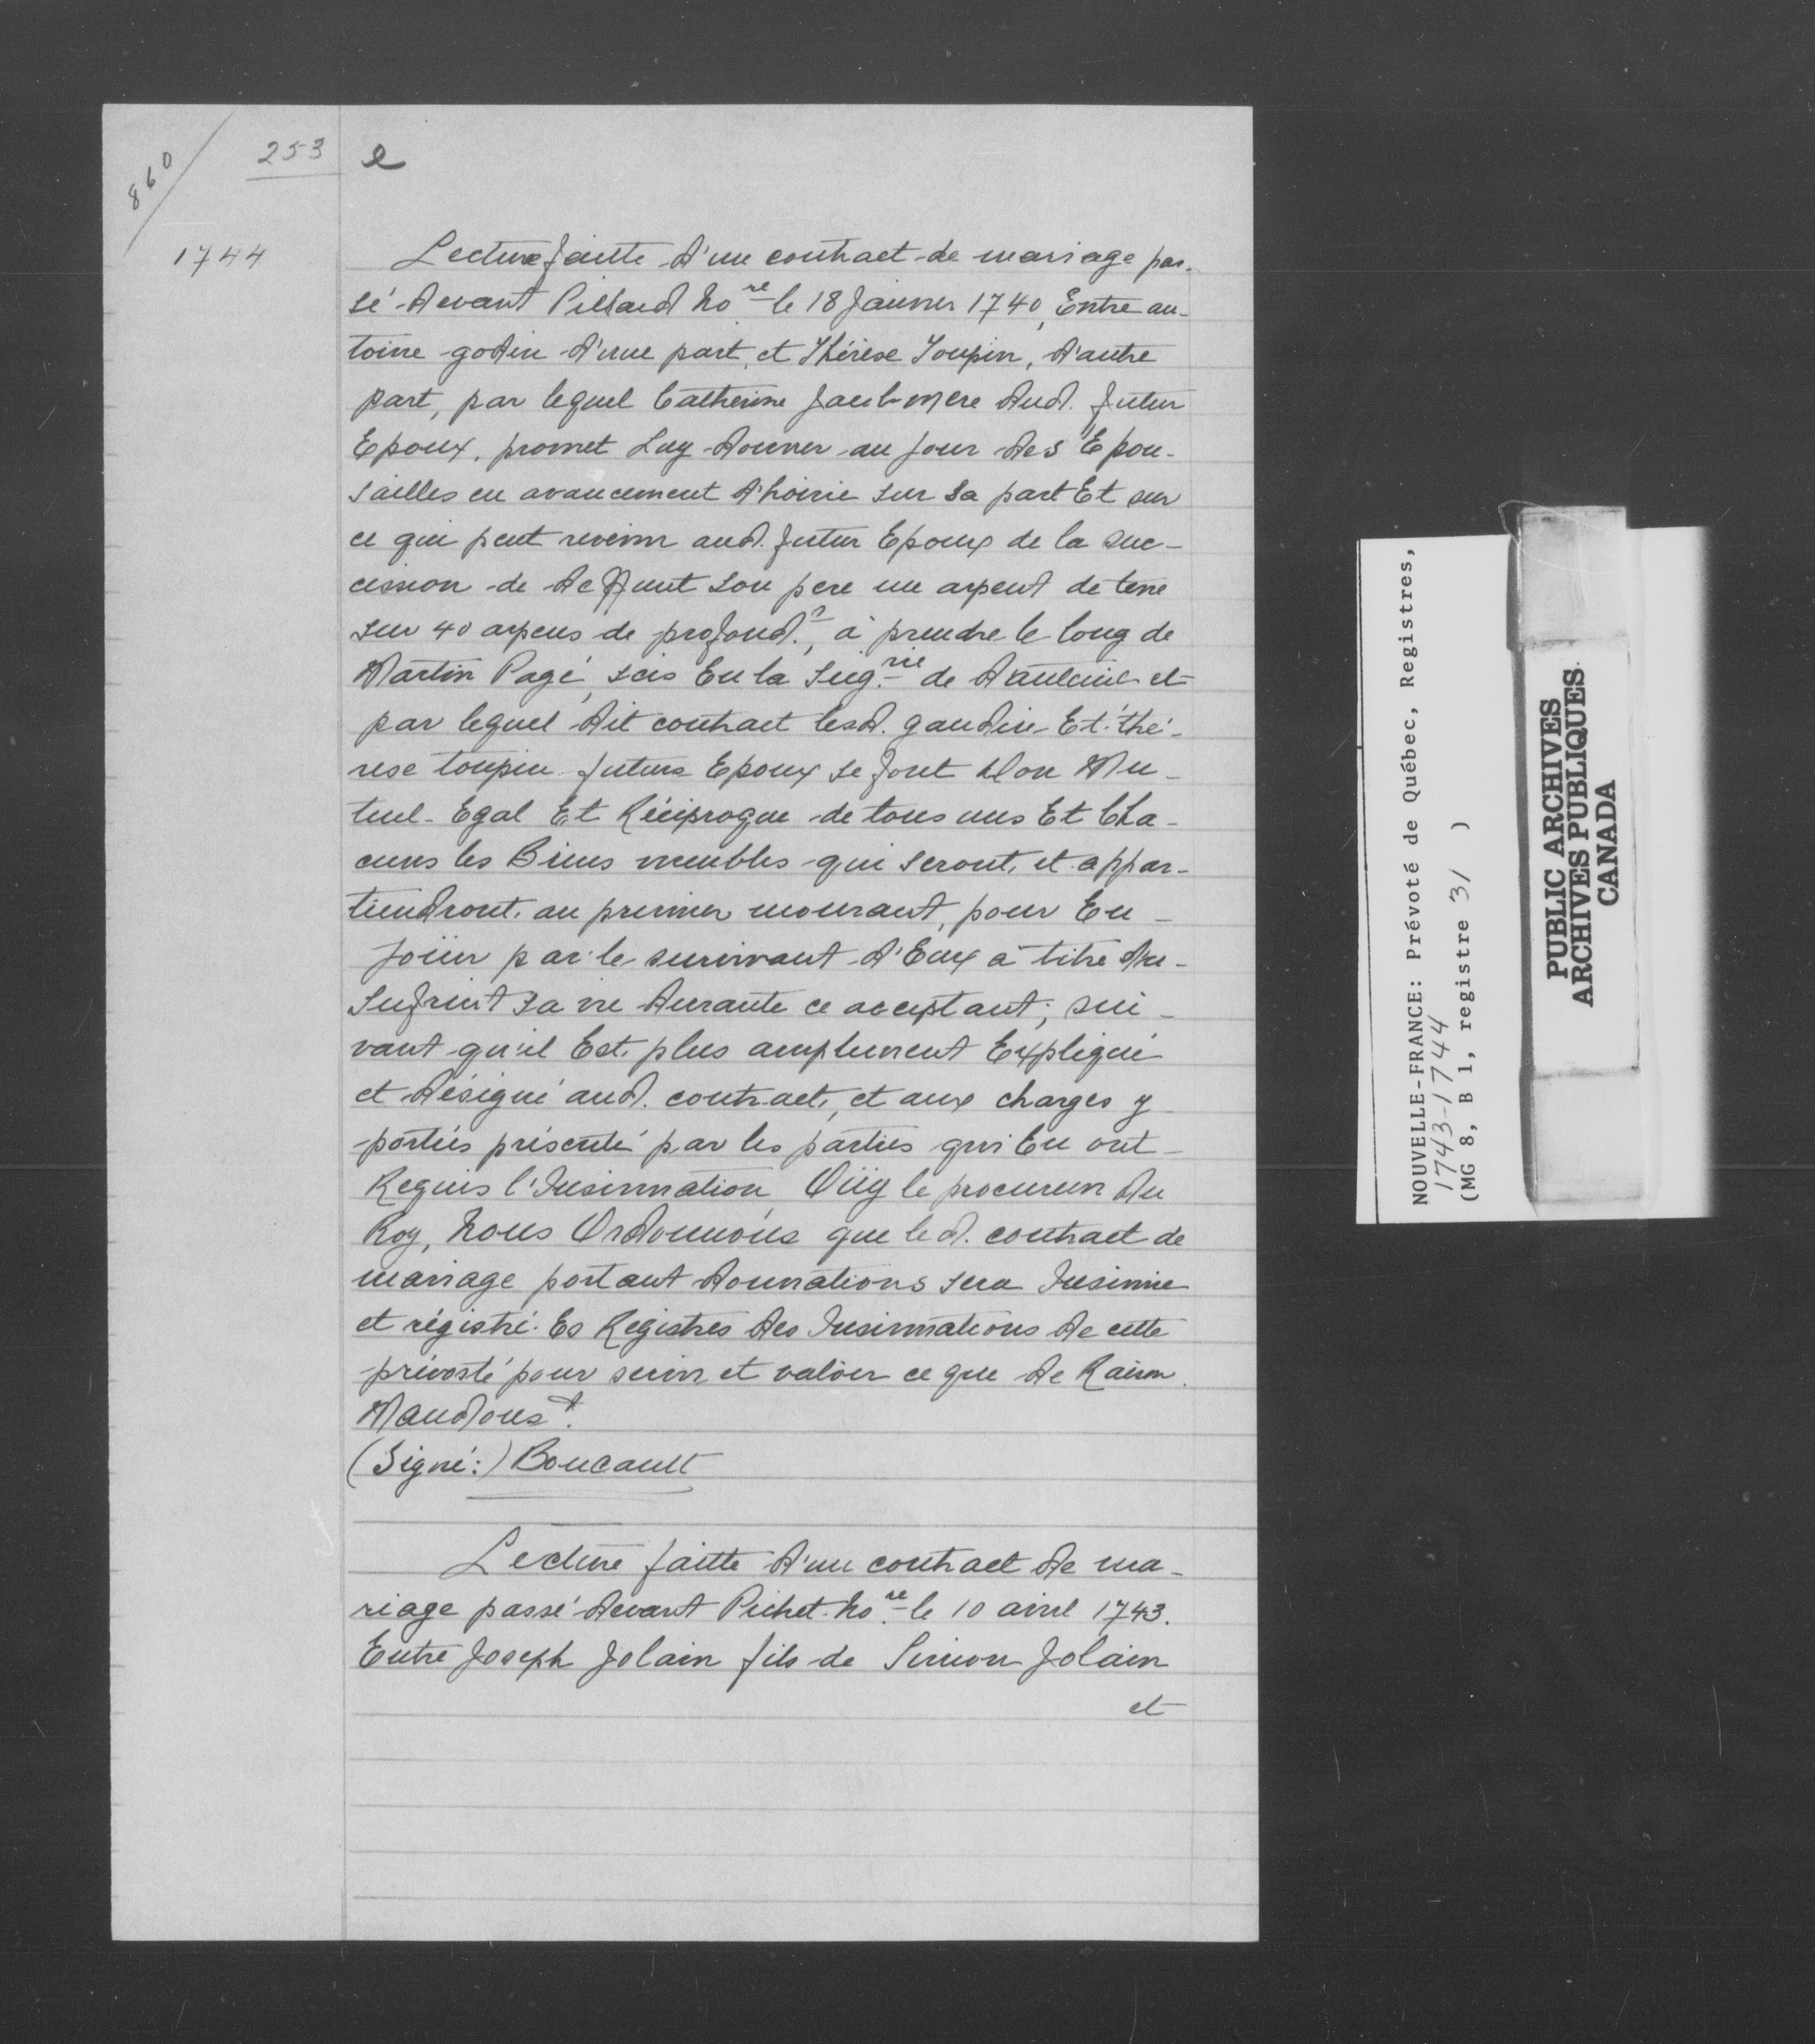 860
253
e
1744
Lecture faitte d'un contract de mariage pas-
sé devant Pillard no.re le 18 Janvier 1740, Entre an-
toine godin d'une part, et Thérèse Toupin, d'autre
part, par lequel Catherine mere dud. futur
Epoux, promet Luy donner au jour des Epou-
sailles en avancement d'hoirie sur sa part Et sur
ce qui peut revenir aud. futur Epoux de la suc-
cession de deffunt son pere un arpent de terre
sur 40 arpens de profond.r, à prendre le long de
Martin Pagé, scis En la Seig.rie de Dauteuil et
par lequel dit contract lesd. gaudin Et thé-
rese toupin futurs Epoux se font Don Mu-
tuel Egal Et Réciproque de tous uns Et Cha-
cuns les Biens meubles qui seront et appar-
tiendront au premier mourant, pour En
Joüir par le survivant d'Eux à titre du-
sufruit sa vie durante ce acceptant, sui-
vant qu'il Est plus amplement Expliqué
et désigné aud. contract, et aux charges y
portées présenté par les parties qui En ont
Requis l'Insinnation Oüy le procureur du
Roy, Nous Ordonnons que led. contract de
mariage portant donnations sera Insinué
et régistré Es Registres des Insinnations de cette
prévosté pour servir et valoir ce que de Raison.
Mandons &.
(Signé:) Boucault
Lecture faitte d'un contract de ma-
riage passé devant Pichet no.re le 10 avril 1743.
Entre Joseph Jolain fils de Simon Jolain
et
NOUVELLE-FRANCE: Prévoté de Québec, Registres,
1743-1744
(MG 8, B 1, registre 31 )
PUBLIC ARCHIVES
ARCHIVES PUBLIQUES
CANADA